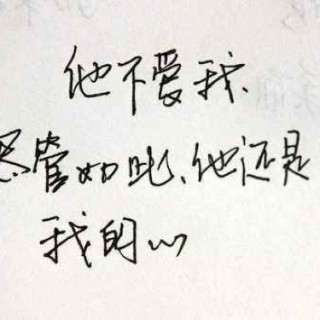 他不爱我、
尽管如此、他还是
我的心